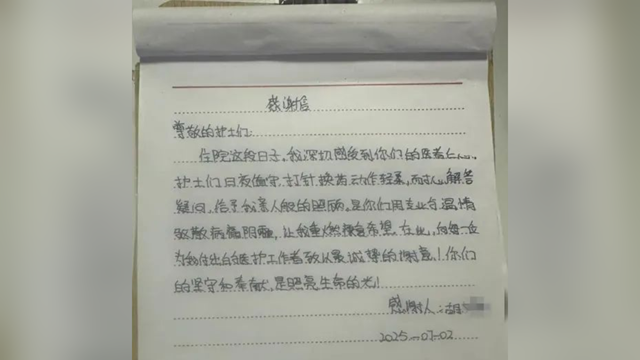 感谢信
尊敬的护士们:
住院这段日子,我深切感受到你们的医者仁心。
护士们日夜值守,打针换药动作轻柔,耐心解答
疑问,给予我亲人般的照顾。是你们用专业与温情
驱散病痛阴霾,让我重燃康复希望。在此,向每一位
为我付出的医护工作者致以最诚挚的谢意!你们
的坚守和奉献,是照亮生命的光!
感谢人:胡
2025-07-02